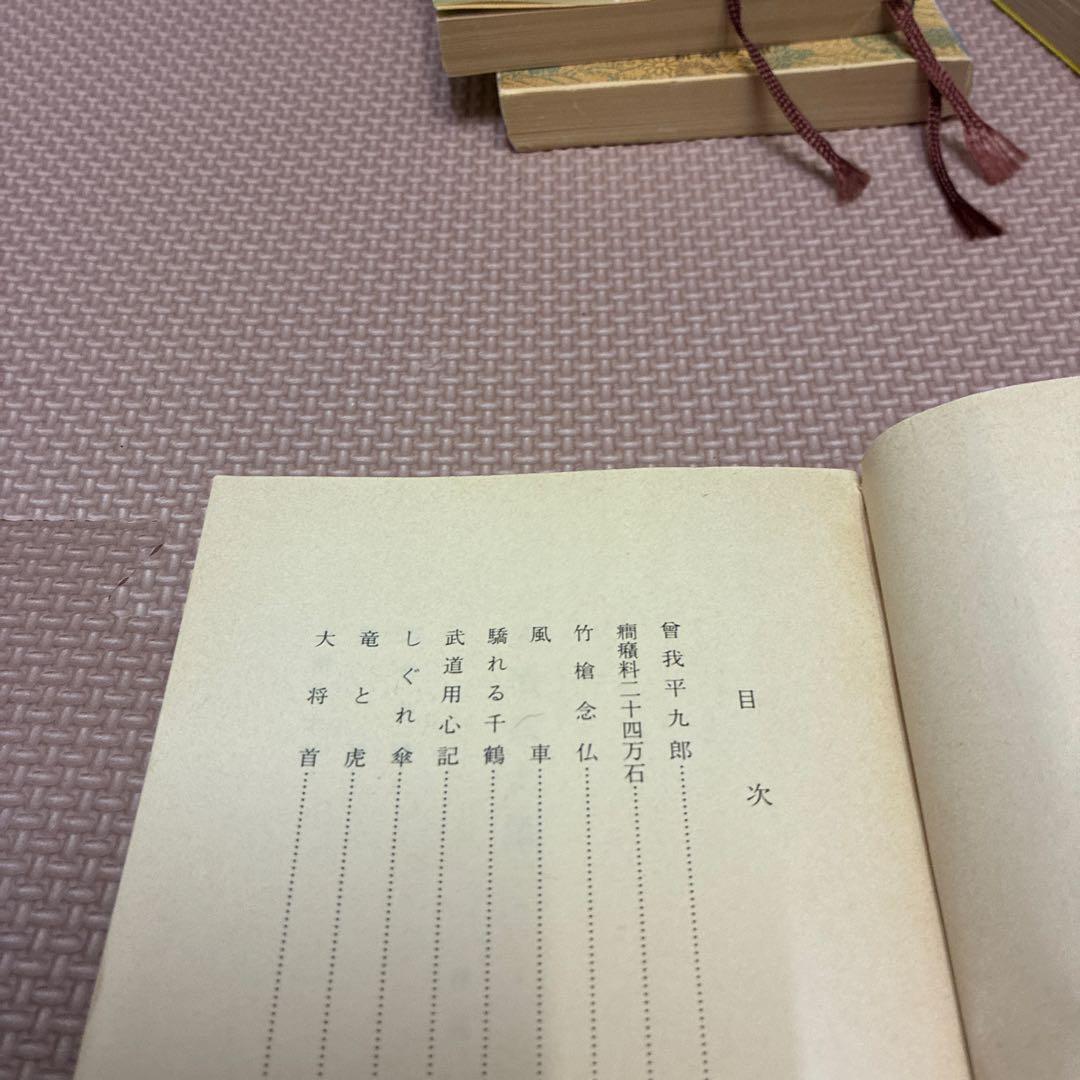 目次
曾我平九郎
癇癪料二十四万石
竹槍念仏
風車
驕れる千鶴
武道用心記
しぐれ傘
竜と虎
大将首